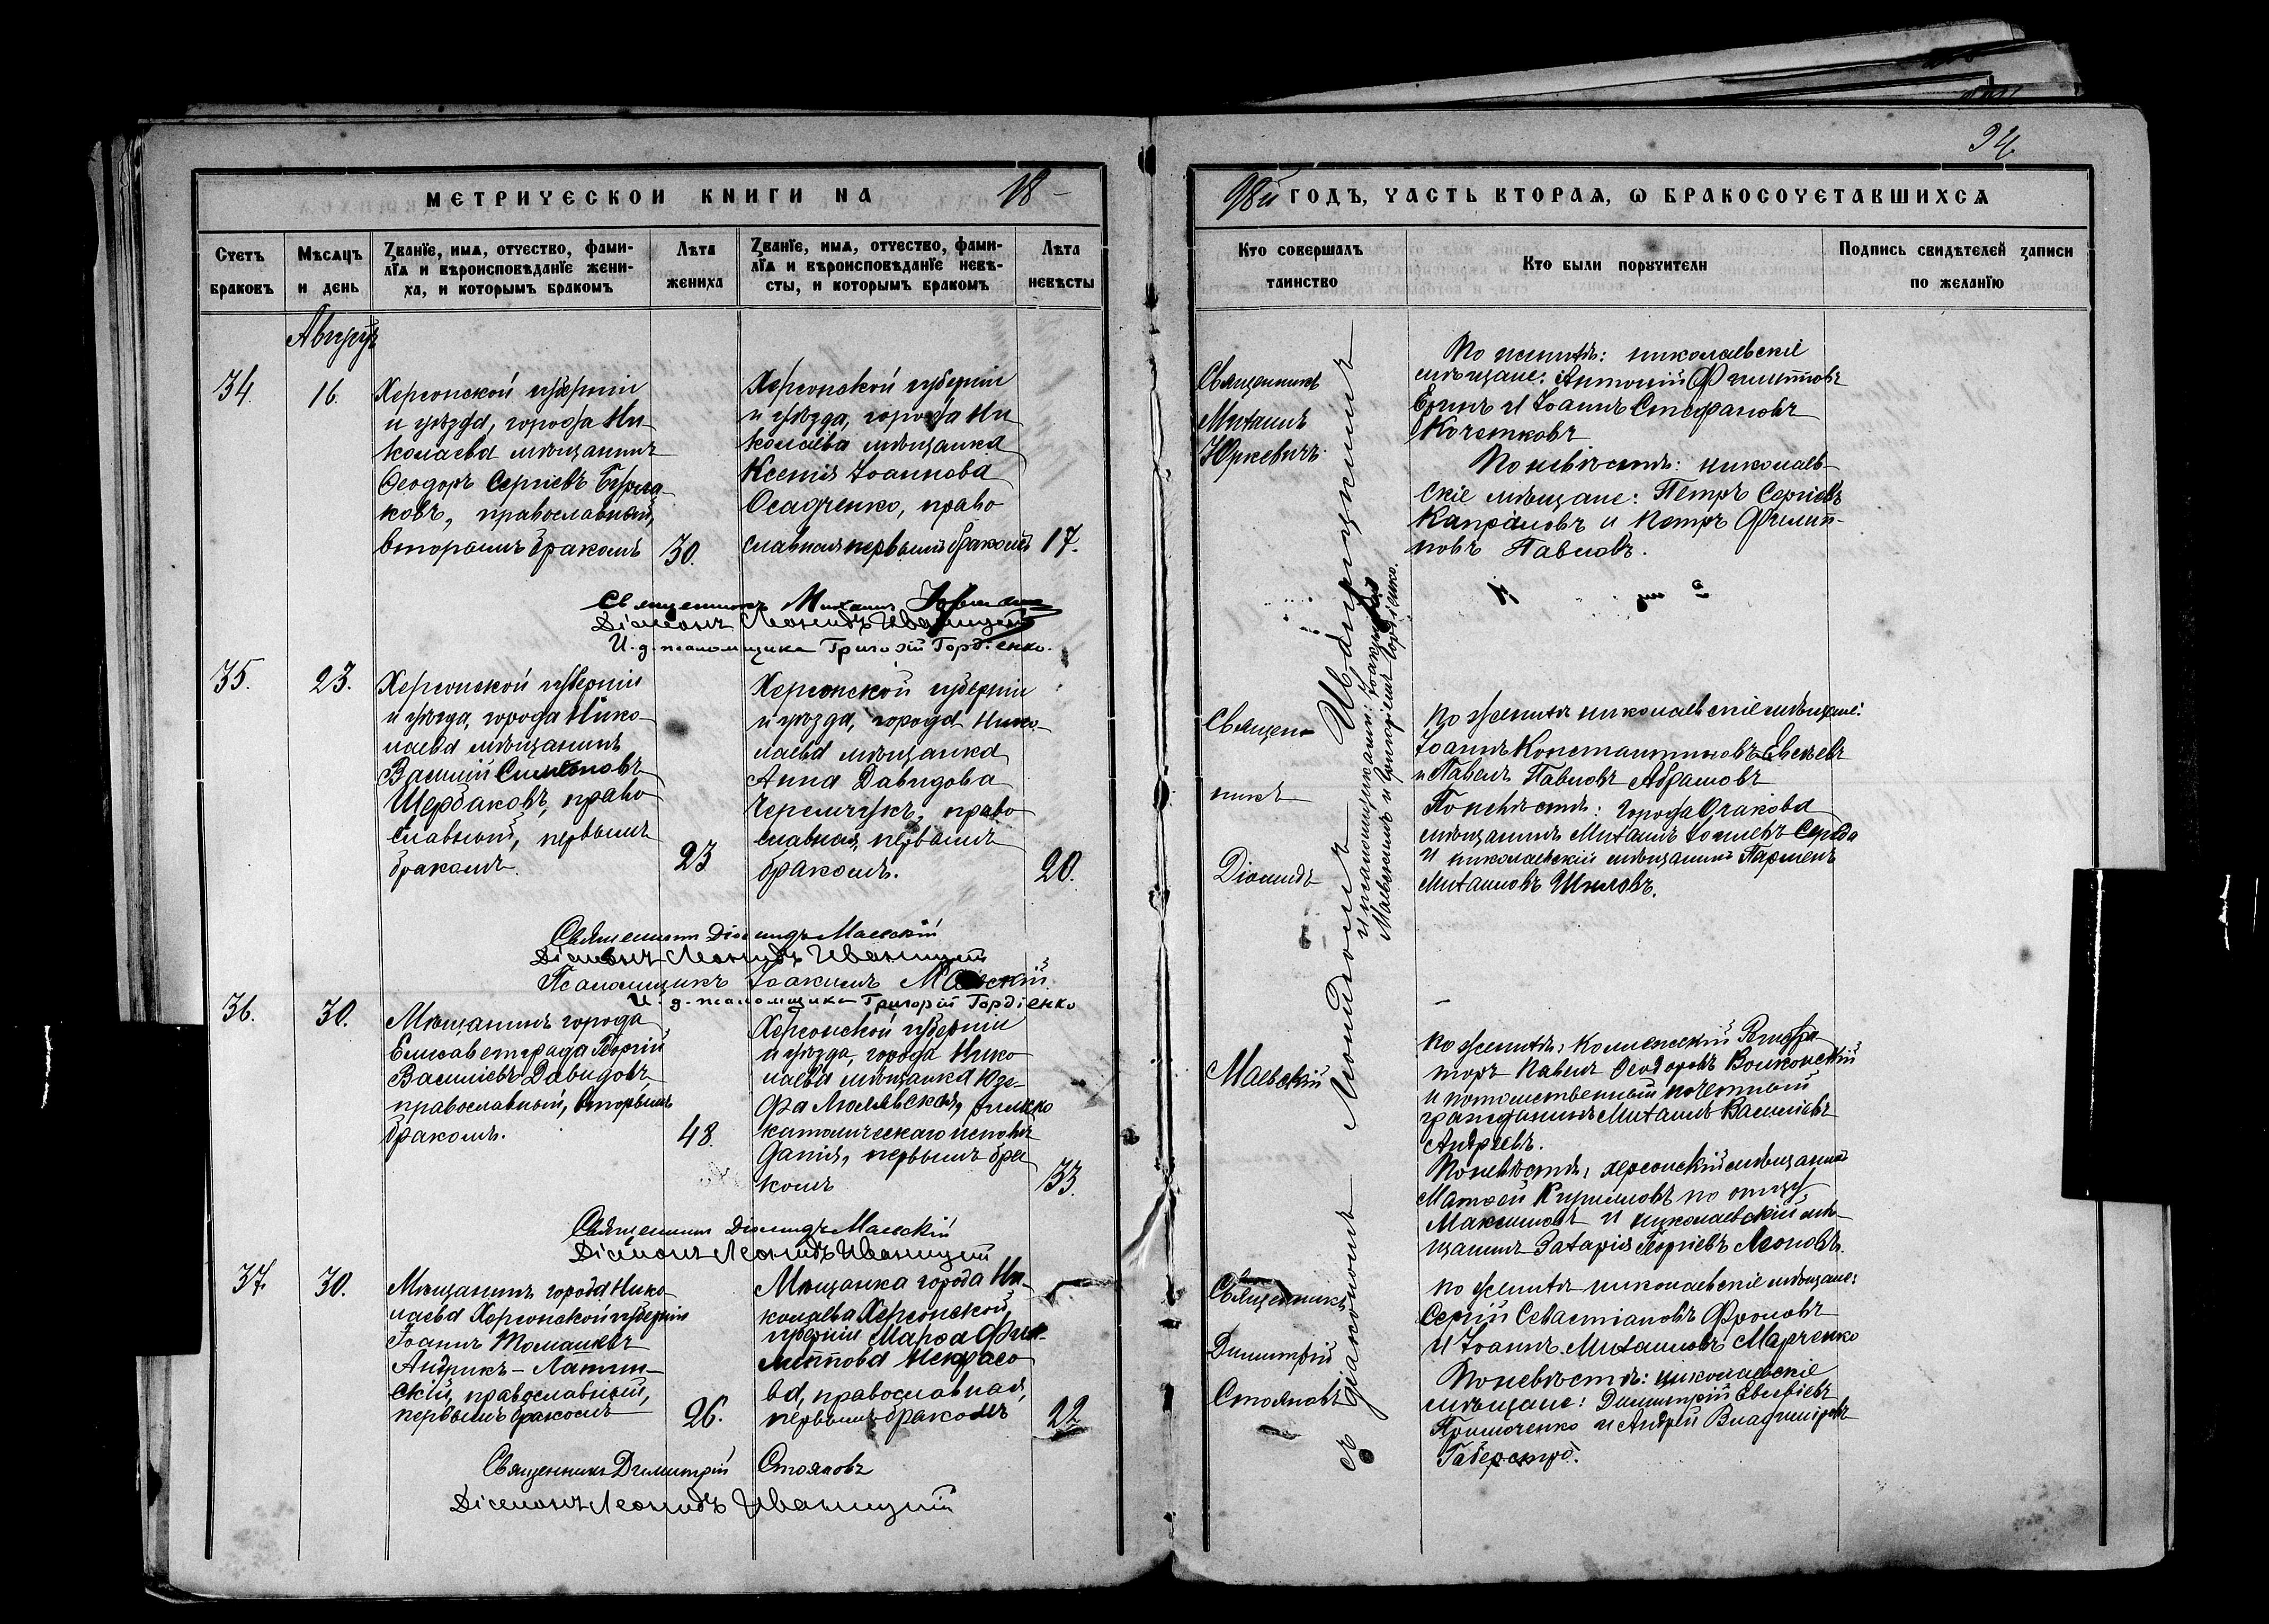 94
МЕТРИЧЕСКОЙ КНИГИ НА 18
98й ГОДЪ, ЧАСТЬ ВТОРАѦ, Ѡ БРАКОСОЧЕТАВШИХСѦ
Счетъ браковъ
Мѣсѧцъ и день
Званїе, имѧ, отчество, фами-
лїѧ и вѣроисповѣданїе жени-
ха, и которымъ бракомъ
Лѣта жениха
Званїе, имѧ, отчество, фами-
лїѧ и вѣроисповѣданїе невѣ-
сты, и которымъ бракомъ
Лѣта невѣсты
Кто совершалъ таинство
Кто были порꙋчители
Подпись свидѣтелей записи
по желанїю
Августъ
34.
16.
Херсонской губерніи
и уѣзда, города Ни-
колаева мѣщанинъ
Ѳеодоръ Сергіевъ Бурла-
ковъ, православный,
вторымъ бракомъ
30.
Херсонской губерніи
и уѣзда, города Ни
колаева мѣщанка
Ксенія Іоаннова
Осадченко, право
славная первымъ бракомъ
17.
Священникъ
Михаилъ
Юркевичъ
По женихѣ: николаевскіе
мѣщане: Антоній Филипповъ
Еринъ и Іоаннъ Стефановъ
Кочетковъ
По невѣстѣ: николаев-
скіе мѣщане: Петръ Сергіевъ
Капраловъ и Петръ Филип-
повъ Павловъ.
Священникъ Михаилъ
Діаконъ Леонидъ Иваницкій
И. д. псаломщика Григорій Гордіенко.
35.
23.
Херсонской губерніи
и уѣзда, города Нико-
лаева мѣщанинъ
Василій Симеоновъ
Щербаковъ, право
славный, первымъ
бракомъ.
23
Херсонской губерніи
и уѣзда, города Нико-
лаева мѣщанка
Анна Давидова
Черемчукъ, право
славная, первымъ
бракомъ.
20.
Священ-
никъ
Діомидъ
Маевскій
По женихѣ николаевскіе мѣщане:
Іоаннъ Константиновъ Евсѣевъ
и Павелъ Павловъ Абрамовъ
По невѣстѣ: города Очакова
мѣщанинъ Михаилъ Іоилевъ Середа
и николаевскій мѣщанинъ Парменъ
Михаиловъ Шиловъ.
Священникъ Діомидъ Маевскій
Діаконъ Леонидъ Иваницкій
Псаломщикъ Іоакимъ Маевскій
И. д. псаломщика Григорій Гордіенко
36.
30.
Мѣщанинъ города
Елисаветграда Георгій
Василіевъ Давидовъ,
православный, вторымъ
бракомъ.
48.
Херсонской губерніи
и уѣзда, города Нико
лаева мѣщанка Юзе-
фа римско
католическаго исповѣ
данія, первымъ бра
комъ
33.
По женихѣ: Коллежскій Регистра
торъ Павелъ Ѳеодоровъ Волконскій
и потомственный почетный
гражданинъ Михаилъ Василіевъ
Андреевъ.
По невѣстѣ: херсонскій мѣщанинъ
Матѳей Кирилловъ по отцу
Максимовъ и николаевскій мѣ-
щанинъ Захарія Георгіевъ Леоновъ.
Священникъ Діомидъ Маевскій
Діаконъ Леонидъ Иваницкій
37.
30.
Мѣщанинъ города Нико-
лаева Херсонской губерніи
Іоаннъ
Андрикъ-Латин-
скій, православный,
первымъ бракомъ
26.
Мѣщанка города Ни-
колаева Херсонской
губерніи Марѳа Фи-
липпова Некрасо
ва, православная,
первымъ бракомъ
22
Священникъ
Димитрій
Стояновъ
По женихѣ николаевскіе мѣщане:
Сергій Севастіановъ Фроловъ
и Іоаннъ Михаиловъ Марченко
По невѣстѣ: николаевскіе
мѣщане: Димитрій Евсевіевъ
и Андрей Владиміровъ
Священникъ Димитрій Стояновъ
Діаконъ Леонидъ Иваницкій
съ діакономъ Леонидомъ Иваницкимъ
и псаломщиками: Іоакимомъ
Маевскимъ и Григоріемъ Гордіенко.